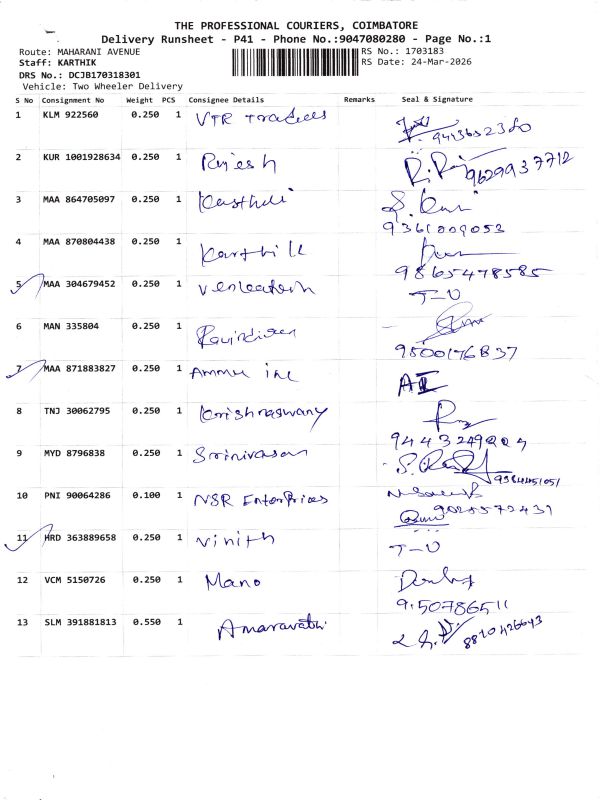 THE PROFESSIONAL COURIERS, COIMBATORE
Delivery Runsheet - P41 - Phone No.:9047080280 - Page No.:1
Route: MAHARANI AVENUE
RS No.: 1703183
Staff: KARTHIK
RS Date: 24-Mar-2026
DRS No.: DCJB170318301
Vehicle: Two Wheeler Delivery
S No Consignment No Weight PCS Consignee Details Remarks Seal & Signature
1 KLM 922560 0.250 1 VTR Traders
2 KUR 1001928634 0.250 1 Rajesh 9629937712
3 MAA 864705097 0.250 1
9361009053
4 MAA 870804438 0.250 1 Karthik
9865478585
5 MAA 304679452 0.250 1 Venkatesh T-U
6 MAN 335804 0.250 1
7 MAA 871883827 0.250 1 Ammu inc
8 TNJ 30062795 0.250 1 Krishnaswamy
9 MYD 8796838 0.250 1 Srinivasan
10 PNI 90064286 0.100 1 NSR Enterprises
9025572431
11 HRD 363889658 0.250 1 Vinith T-U
12 VCM 5150726 0.250 1 Mano
13 SLM 391881813 0.550 1 Amaravathi